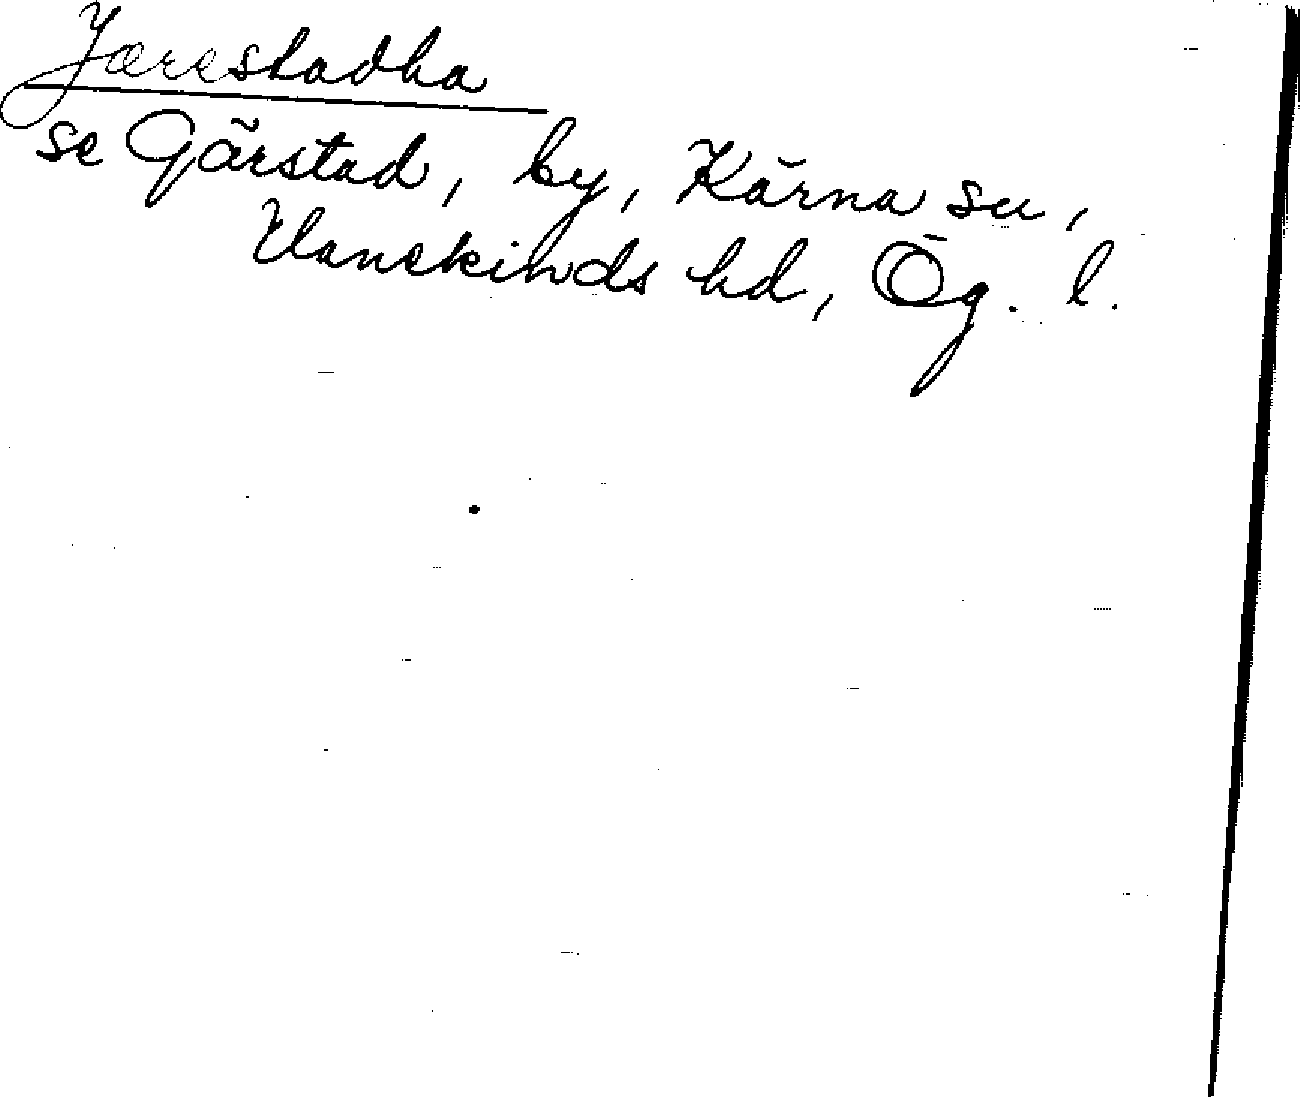 Jærestadha
se Gärstad, by, Kärna sn,
Hanekinds hd, Ög. l.